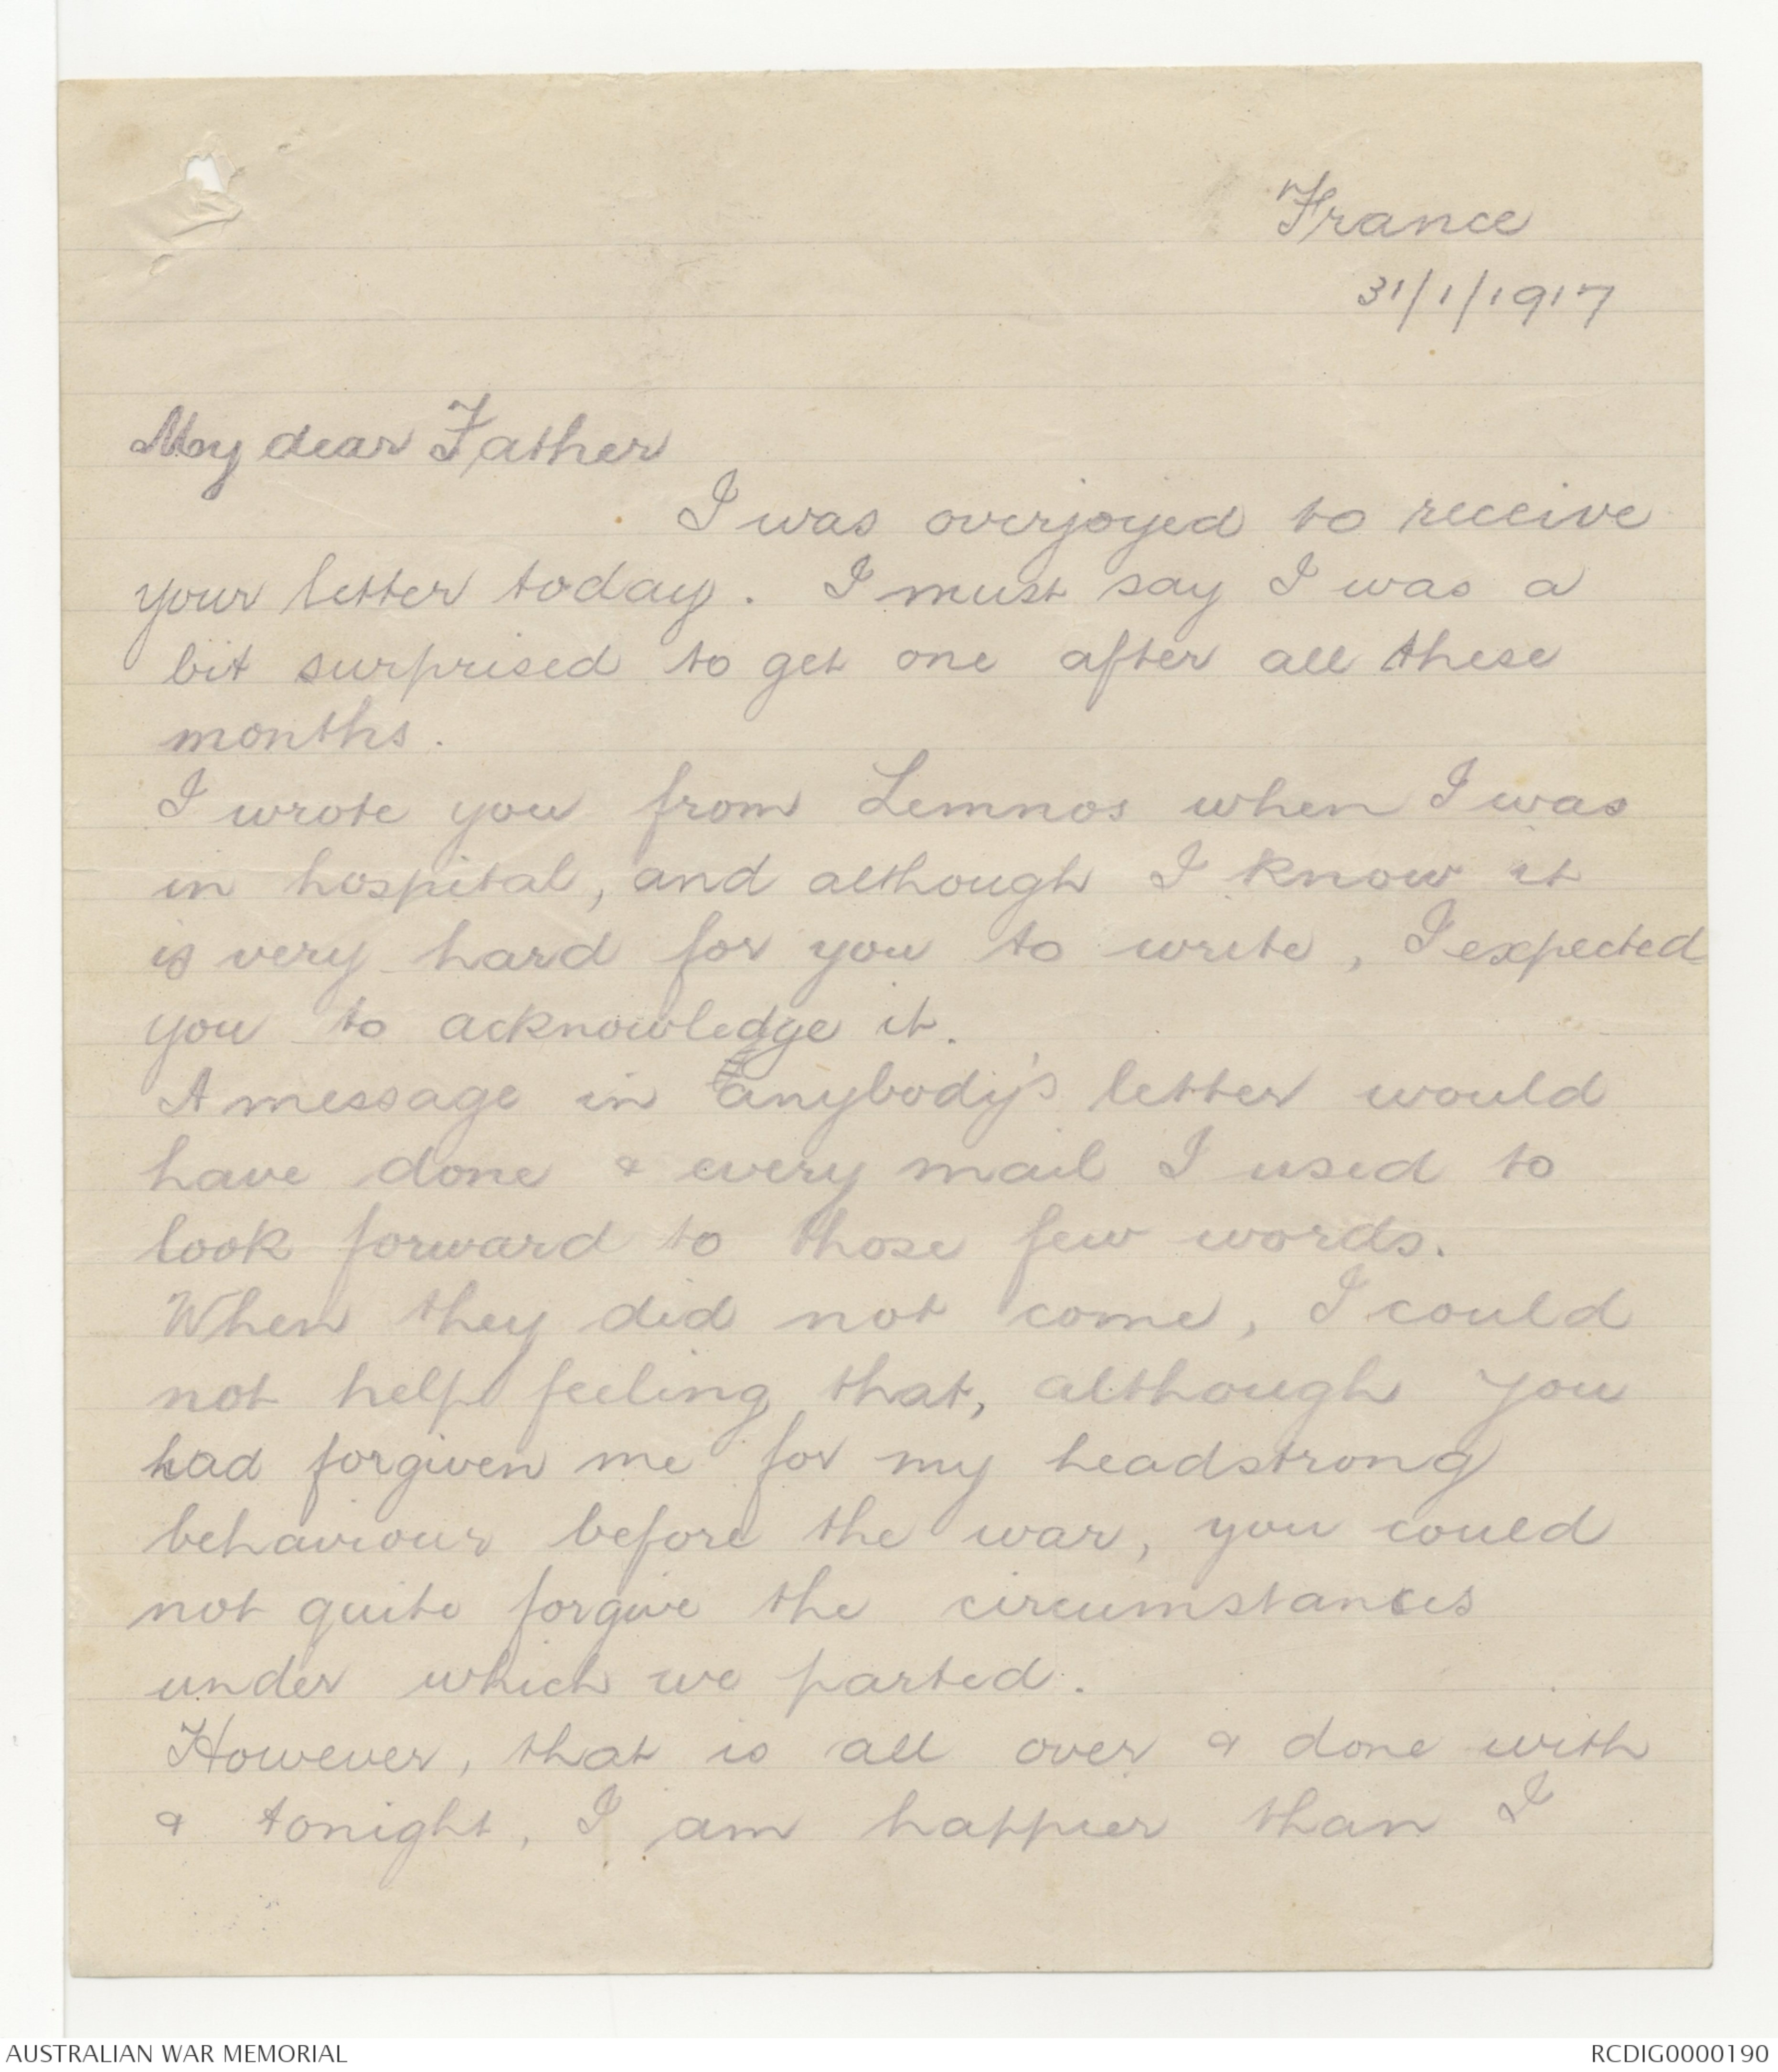 France
31/1/1917
My dear Father
I was overjoyed to receive
your letter today. I must say I was a
bit surprised to get one after all these
months.
I wrote you from Lemnos when I was
in hospital, and although I know it
is very hard for you to write, I expected
you to acknowledge it.
A message in anybody's letter would
have done & every mail I used to
look forward to those few words.
When they did not come, I could
not help feeling that, although you
had forgiven me for my headstrong
behaviour before the war, you could
not quite forgive the circumstances
under which we parted.
However, that is all over & done with
& tonight, I am happier than I
AUSTRALIAN WAR MEMORIAL
RCDIG0000190